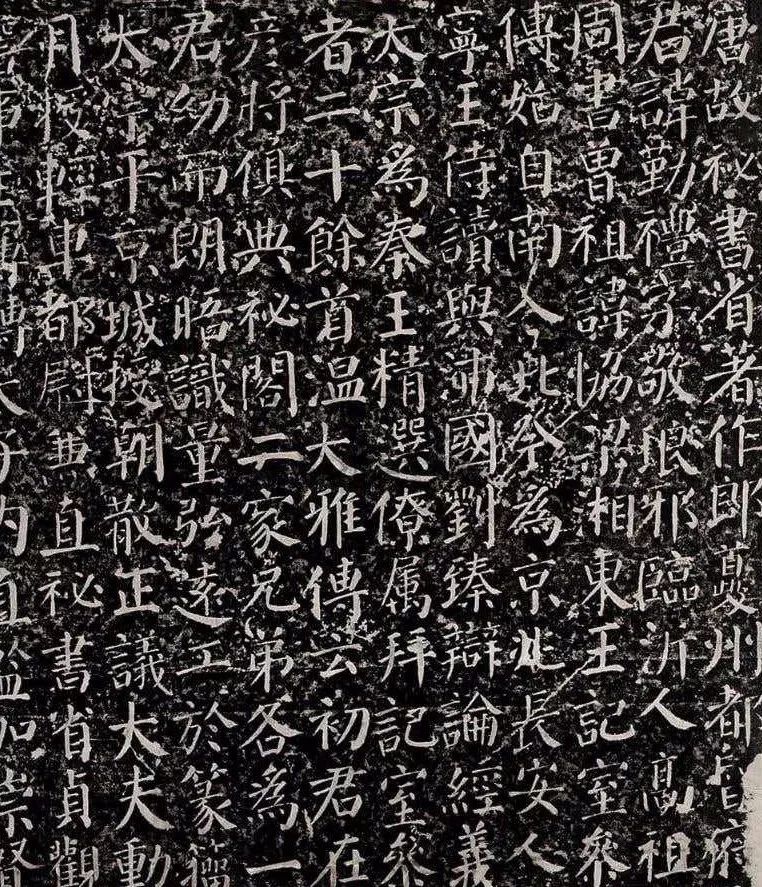 唐故祕書省著作郎夔州都督府
君諱勤禮字敬琅邪臨沂人高祖
周書曽祖諱協梁湘東王記室參
傳始自南入北今為京兆長安人
寧王侍讀與沛國劉臻辯論經義
太宗為秦王精選僚属拜記室參
者二十餘首温大雅傳云初君在
彦将俱典祕閣二家兄弟各為一
君幼而朗晤識量弘遠工於篆籀
太宗平京城授朝散正議大夫勳
月授輕車都尉兼直祕書省貞觀
事 轉太子内直監加崇賢